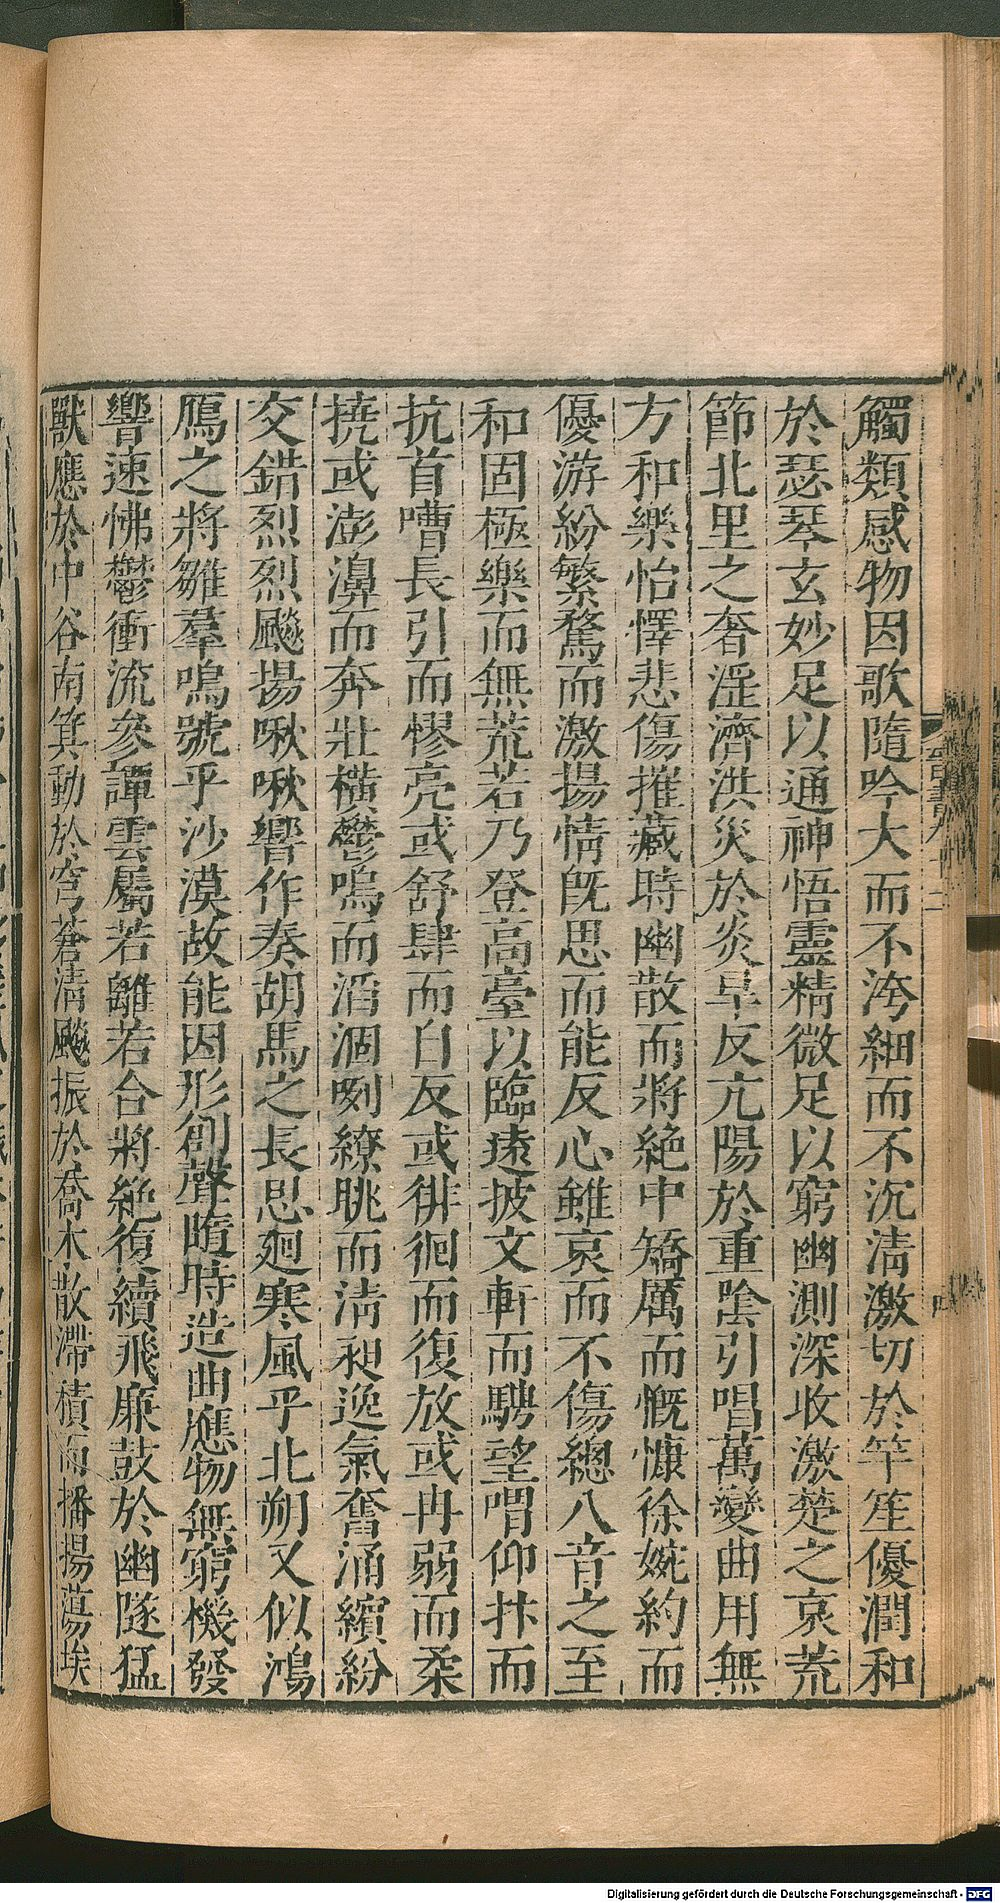 觸類感物因歌隨吟大而不洿細而不沉淸激切於竽笙優潤和
於瑟琴玄妙足以通神悟靈精微足以窮幽測深收激楚之哀荒
節北里之奢淫濟洪災於炎旱反亢陽於重陰引唱萬變曲用無
方和樂怡懌悲傷摧藏時幽散而將絶中矯厲而慨慷徐婉約而
優游紛繁騖而激揚情旣思而能反心雖哀而不傷總八音之至
和固極樂而無荒若乃登高臺以臨遠披文軒而騁望喟仰抃而
抗首嘈長引而憀亮或舒肆而自反或徘徊而復放或冉弱而柔
撓或澎濞而奔壯橫鬱嗚而滔涸𠛱繚眺而淸昶逸氣奮涌繽紛
交錯烈烈飈揚啾啾響作奏胡馬之長思廻寒風乎北朔又似鴻
鴈之將雛羣鳴號乎沙漠故能因形創聲隨時造曲應物無窮機發
響速怫鬱衝流參譚雲屬若離若合將絶復續飛廉鼓於幽隧猛
獸應於中谷南箕動於穹蒼淸飈振於喬木散滯積而播揚蕩埃
晉書九十二
Digitalisierung gefördert durch die Deutsche Forschungsgemeinschaft - DFG